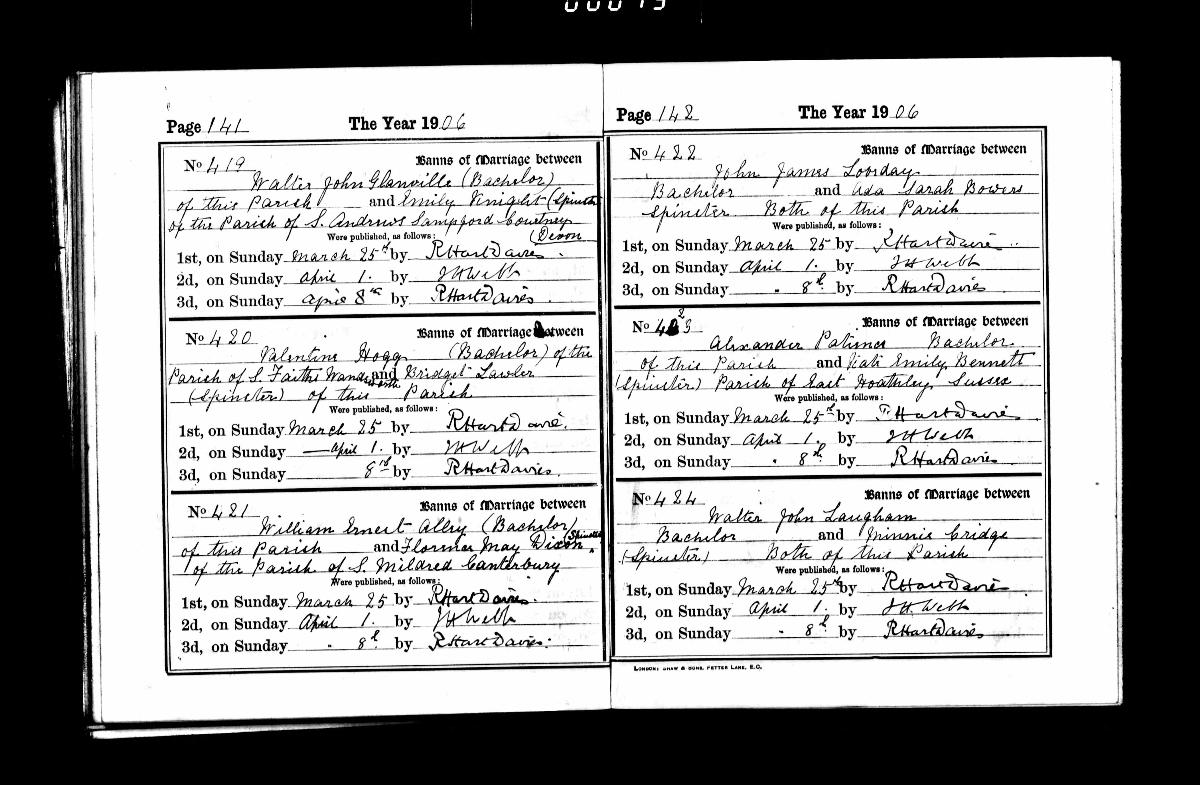 00079
Page 141 The Year 1906
No 419 Banns of Marriage between
Walter John Glanville (Bachelor)
of this Parish and Emily Knight (Spinster
of the Parish of S. Andrews Sampford Courtney
Were published, as follows: (Devon
1st, on Sunday March 25th by R Hart Davies
2d, on Sunday April 1. by J H Webb
3d, on Sunday April 8th by R Hart Davies
No 420 Banns of Marriage between
Valentine Hogg (Bachelor) of the
Parish of S. Faiths Wandsworth and Bridget Lawler
(Spinster) of this Parish
Were published, as follows:
1st, on Sunday March 25 by R Hart Davies.
2d, on Sunday April 1. by J H Webb
3d, on Sunday 8th by R Hart Davies.
No 421 Banns of Marriage between
William Ernest (Bachelor)
of this Parish and May Dixon, Spinster
of the Parish of S. Mildred Canterbury
Were published, as follows:
1st, on Sunday March 25 by R Hart Davies.
2d, on Sunday April 1. by J H Webb
3d, on Sunday " 8th by R Hart Davies.
Page 142 The Year 1906
No 422 Banns of Marriage between
John James Loosday
Bachelor and Ada Sarah Bowers
Spinster Both of this Parish
Were published, as follows:
1st, on Sunday March 25 by R Hart Davies
2d, on Sunday April 1. by J H Webb
3d, on Sunday " 8th by R Hart Davies
No 423 Banns of Marriage between
Alexander Palimer Bachelor
of this Parish and Kate Emily Bennett
(Spinster) Parish of East Hoathley, Sussex
Were published, as follows:
1st, on Sunday March 25th by R Hart Davies
2d, on Sunday April 1. by J H Webb
3d, on Sunday " 8th by R Hart Davies
No 424 Banns of Marriage between
Walter John Langham
Bachelor and Minnie Cridge
(Spinster) Both of this Parish
Were published, as follows:
1st, on Sunday March 25th by R Hart Davies
2d, on Sunday April 1. by J H. Webb
3d, on Sunday " 8th by R Hart Davies
London: Shaw & Sons, Fetter Lane, E.C.